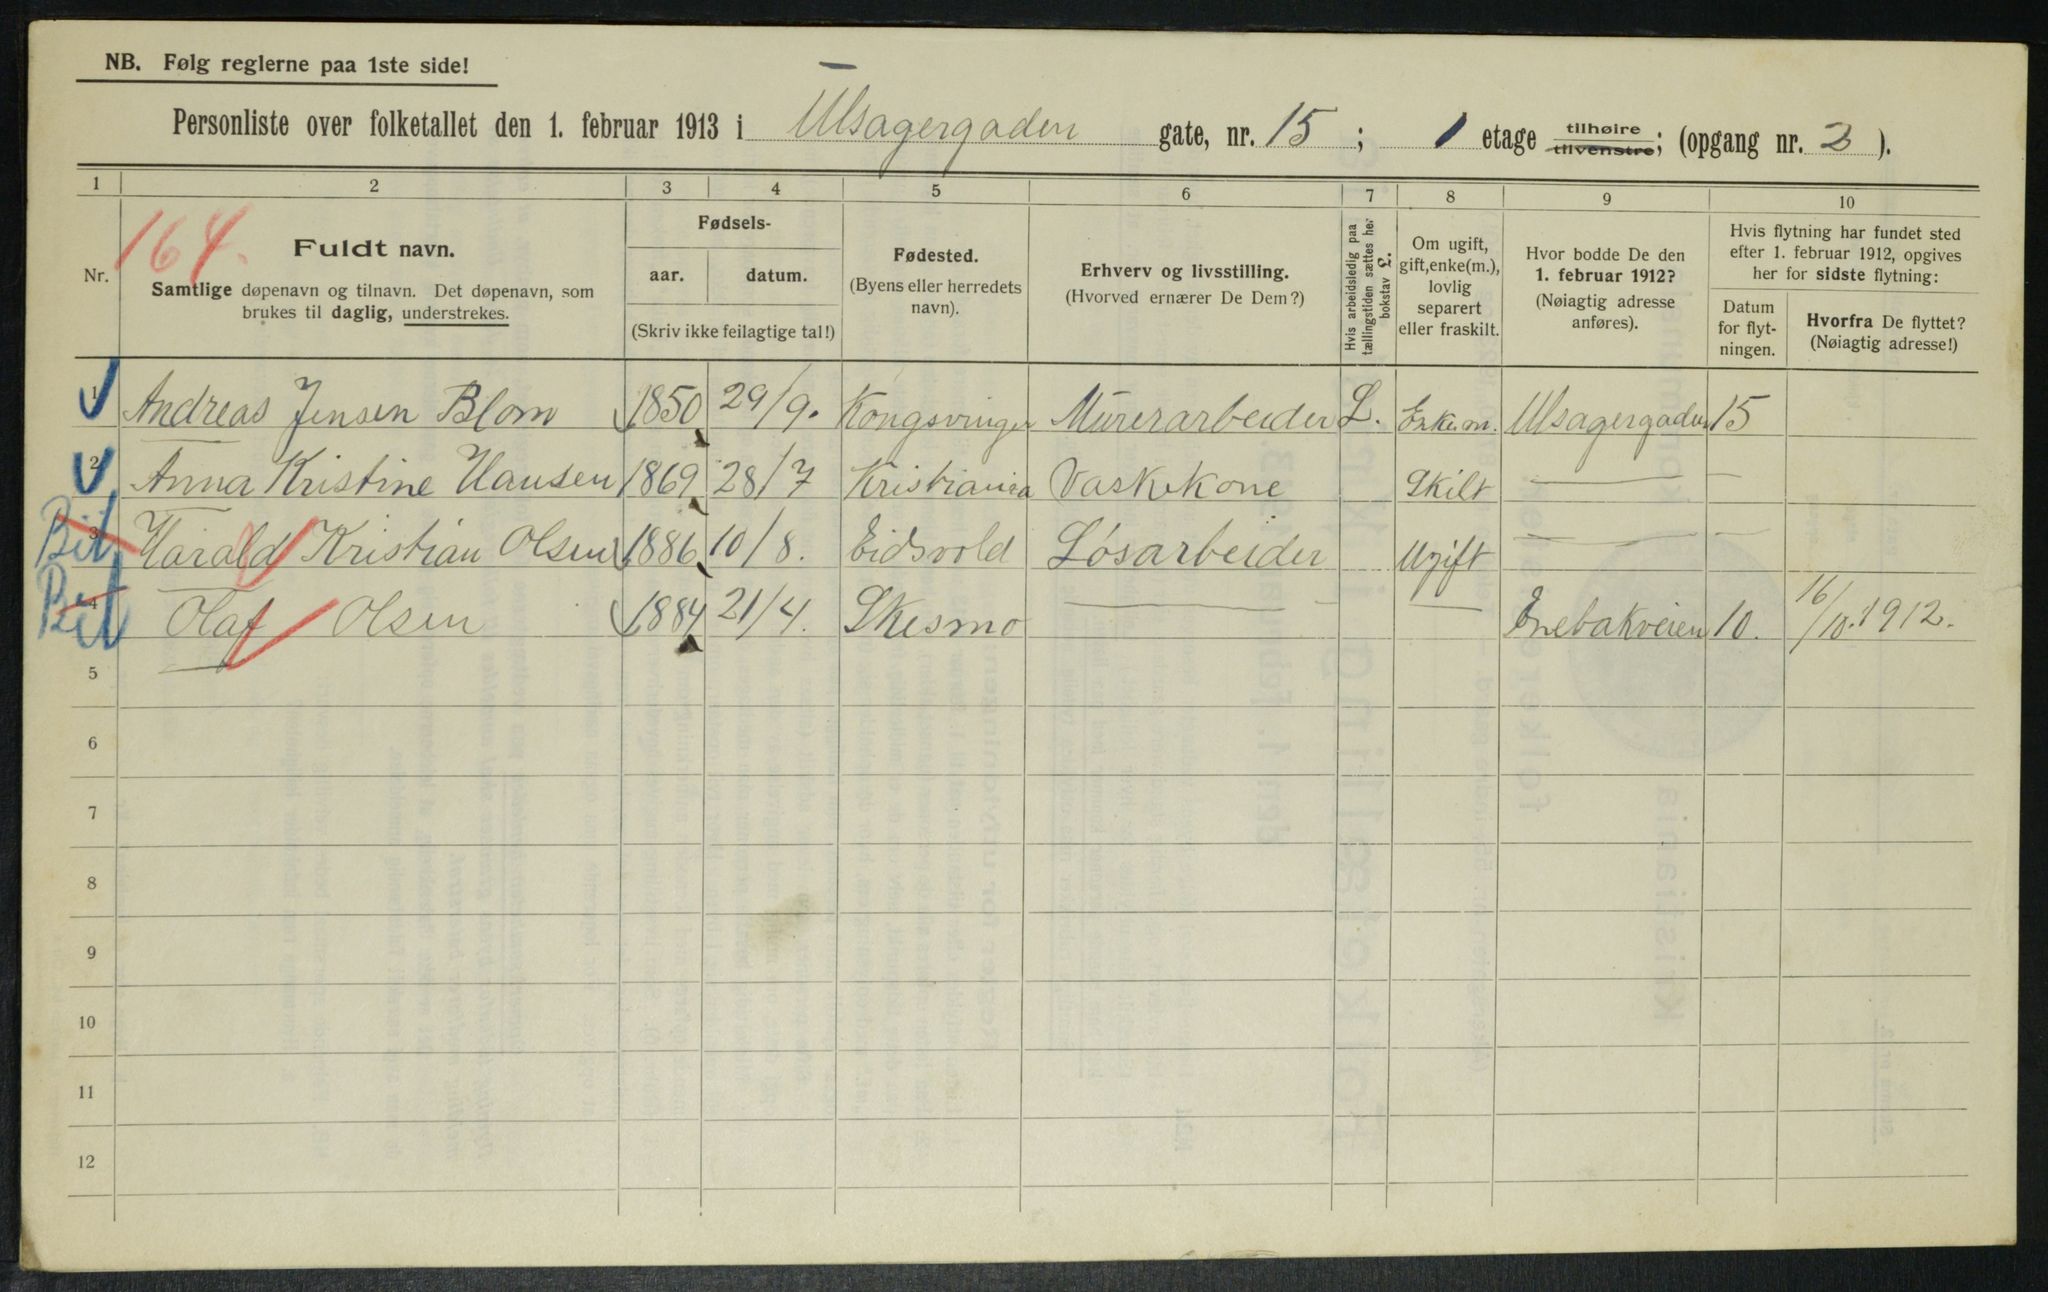 NB. Følg reglerne paa 1ste side!
Personliste over folketallet den 1. februar 1913 i Ulsagergaden gate, nr. 15 ; 1 etage tilhøire tilvenstre; (opgang nr. 2 ).
1 2 3 4 5 6 7 8 9 10
164.
Nr.
Fuldt navn.
Samtlige døpenavn og tilnavn. Det døpenavn, som
brukes til daglig, understrekes.
Fødsels-
aar. datum.
(Skriv ikke feilagtige tal!)
Fødested.
(Byens eller herredets
navn).
Erhverv og livsstilling.
(Hvorved ernærer De Dem?)
Hvis arbeidsledig paa
tællingstiden sættes her
bokstav L.
Om ugift,
gift, enke(m.),
lovlig
separert
eller fraskilt.
Hvor bodde De den
1. februar 1912?
(Nøiagtig adresse
anføres).
Hvis flytning har fundet sted
efter 1. februar 1912, opgives
her for sidste flytning:
Datum
for flyt-
ningen.
Hvorfra De flyttet?
(Nøiagtig adresse!)
1 Andreas Jensen Blom 1850 29/9. Kongsvinger Murerarbeider L. Enkem. Ulsagergaden 15
2 Anna Kristine Hansen 1869 28/7 Kristiania Vaskekone Skilt — —
Bit 3 Harald Kristian Olsen 1886 10/8. Eidsvold Løsarbeider Ugift — —
Bit 4 Olaf Olsen 1884 21/4. Skesmo — — Enebakveien 10. 16/10. 1912.
5
6
7
8
9
10
11
12